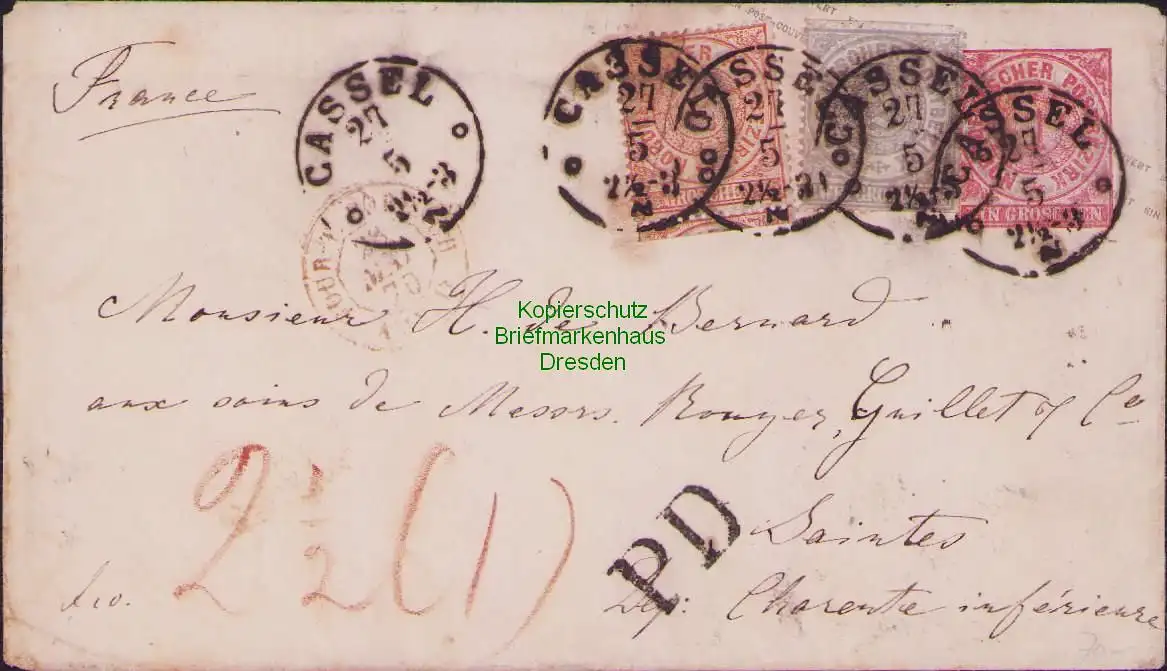 France
CASSEL
27
5
2½-3
N
CASSEL
27
5
2½-3
N
CASSEL
27
5
2½-3
N
CASSEL
27
5
2½
CASSEL
27
5
2½-3
N
EIN GROSCHEN
Kopierschutz
Briefmarkenhaus
Dresden
Monsieur H. de Bernard
aux soins de Messrs. Rouyer, Guillet & Co
2½ (1)
PD
Saintes
fco.
Dép: Charente inférieure